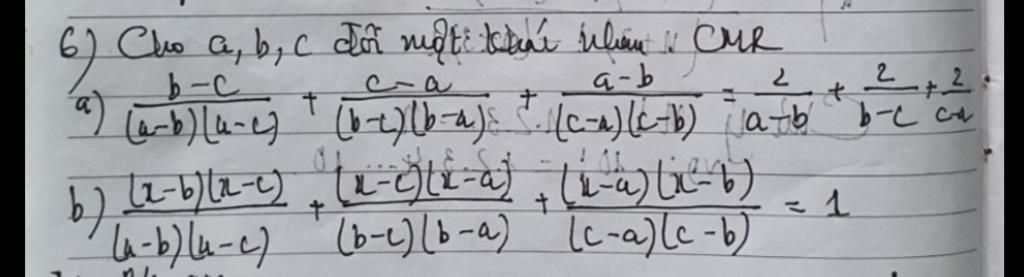 6) Cho a, b, c đôi một khác nhau CMR
a) \frac{b-c}{(a-b)(a-c)} + \frac{c-a}{(b-c)(b-a)} + \frac{a-b}{(c-a)(c-b)} = \frac{2}{a-b} + \frac{2}{b-c} + \frac{2}{c-a}
b) \frac{(x-b)(x-c)}{(a-b)(a-c)} + \frac{(x-c)(x-a)}{(b-c)(b-a)} + \frac{(x-a)(x-b)}{(c-a)(c-b)} = 1